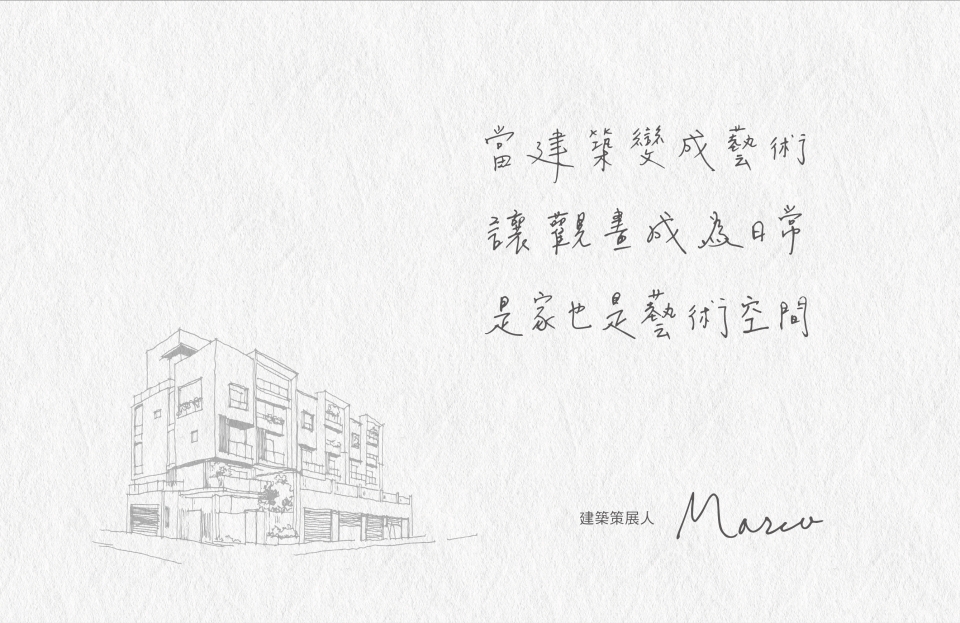 當建築變成藝術
讓觀畫成為日常
是家也是藝術空間
建築策展人 Marco